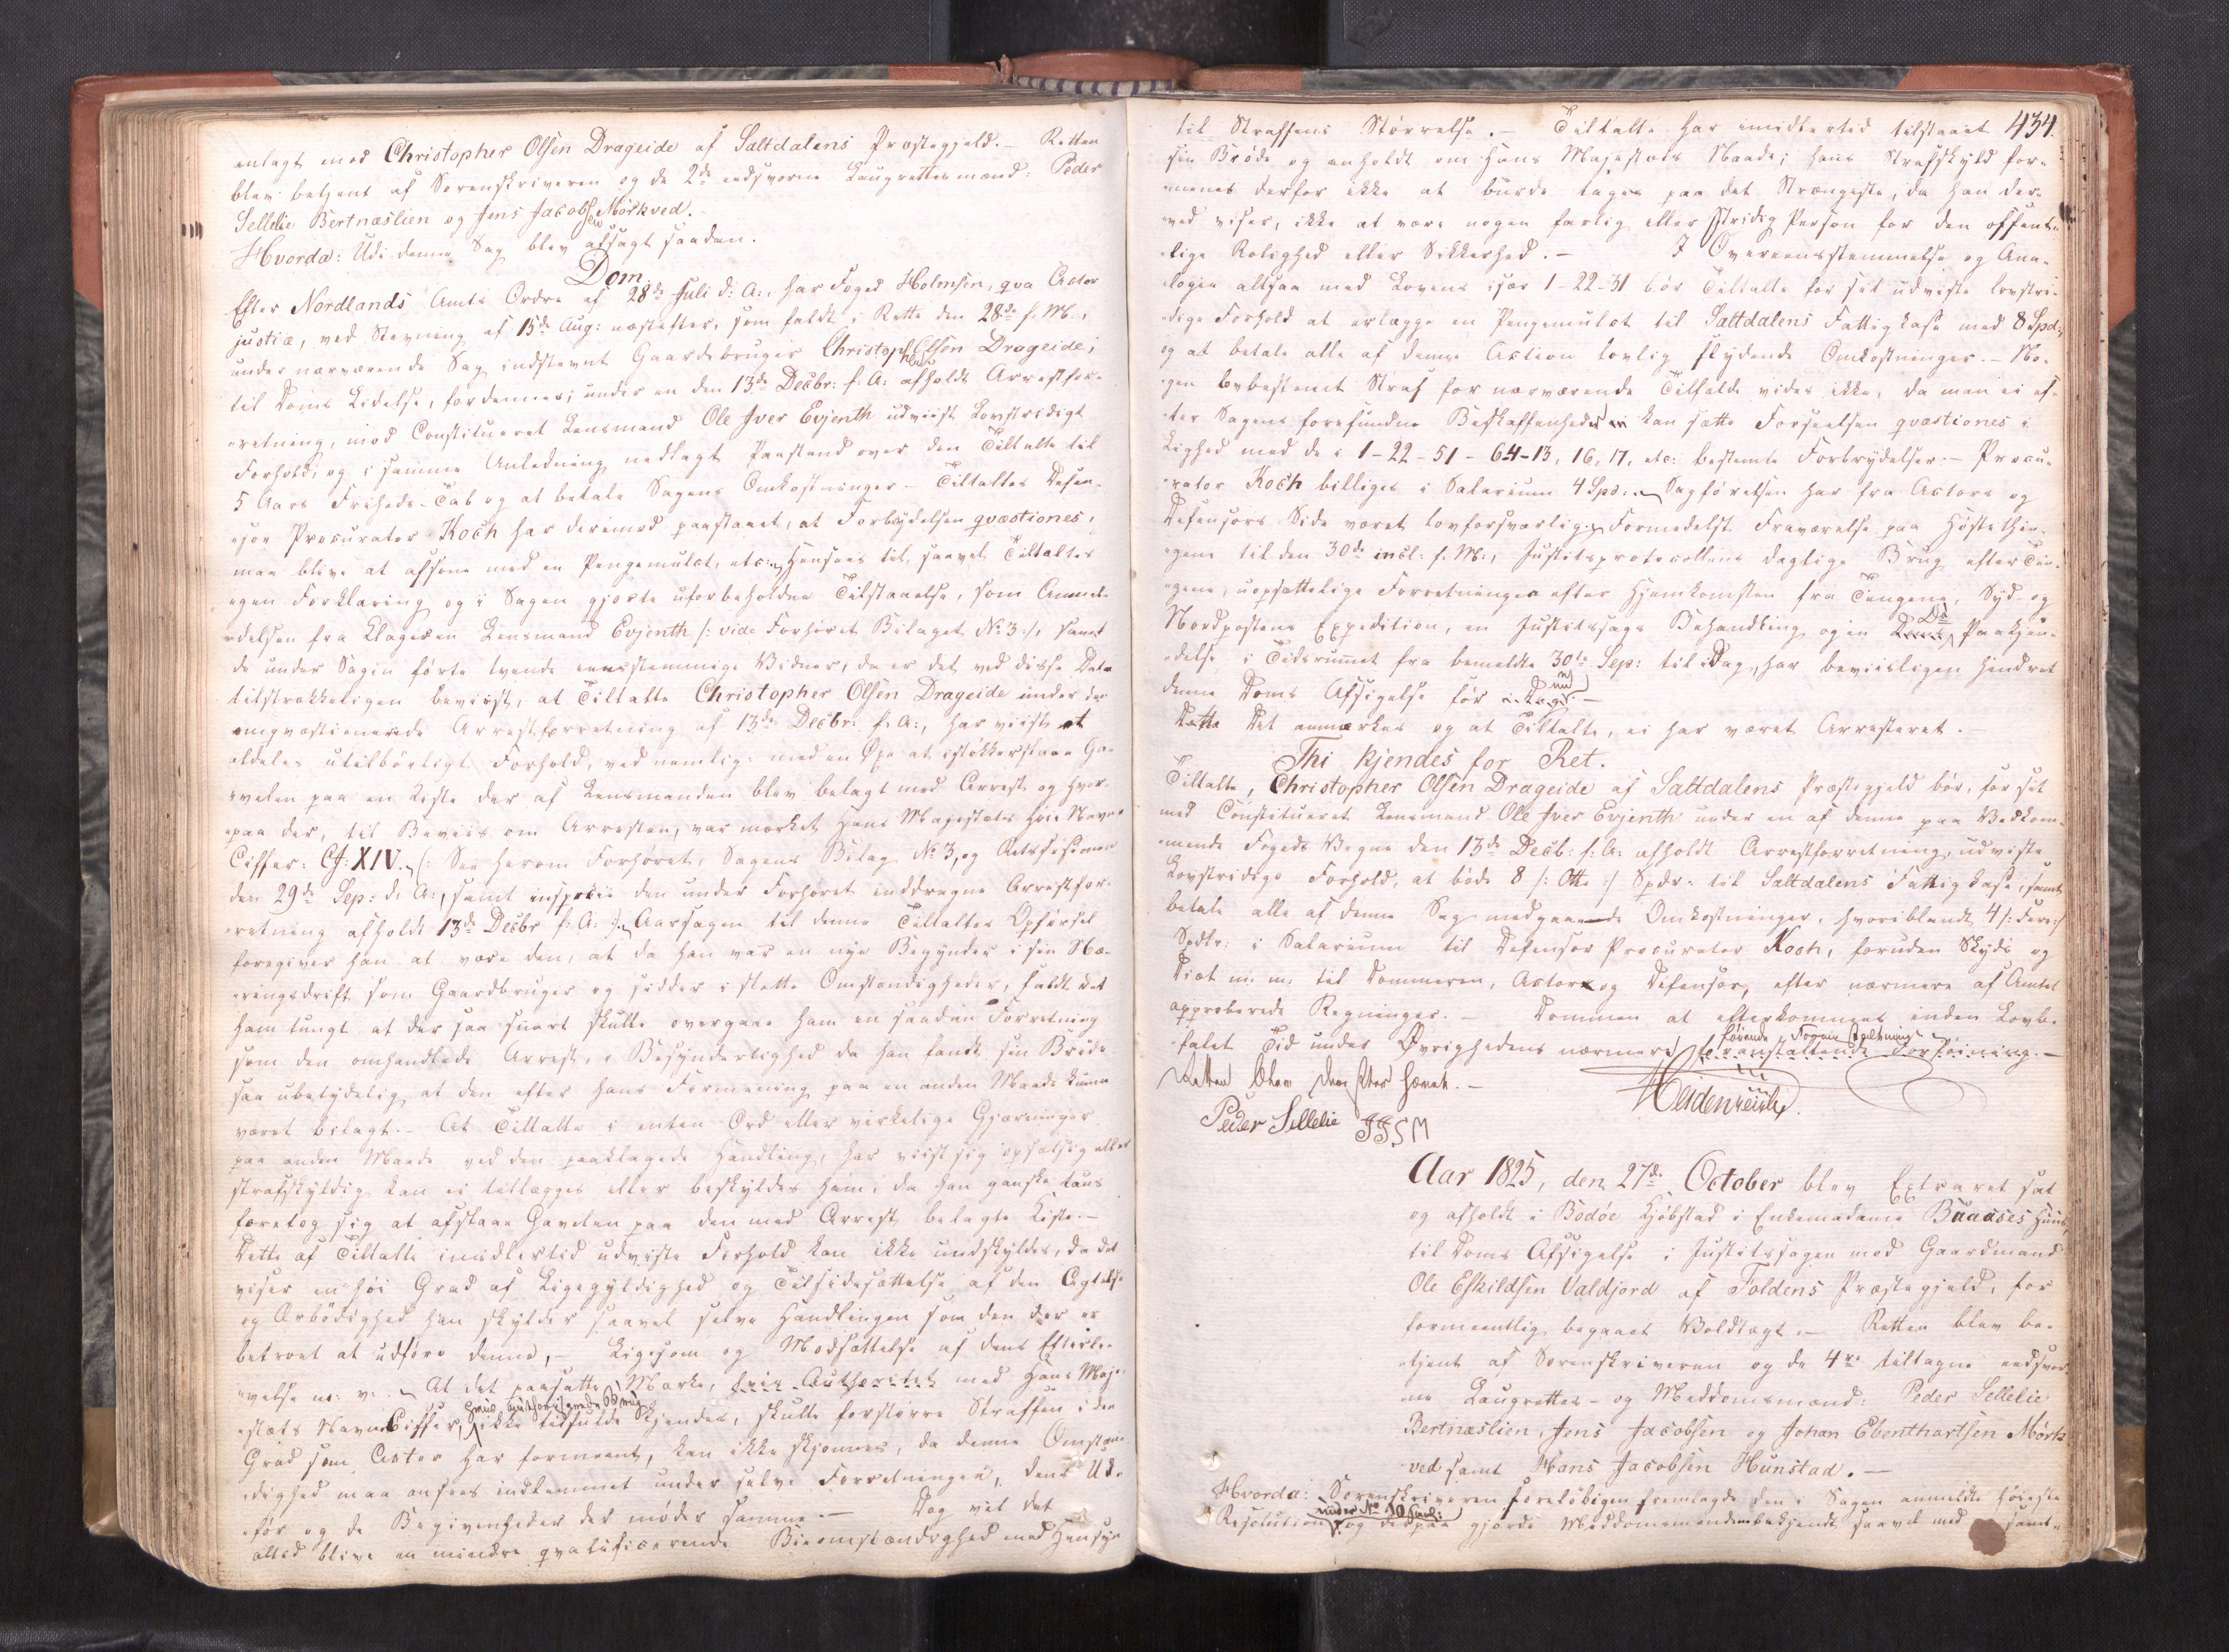 anlagt mod Christopher Olsen Drageide af Saltdalens Præstegjeld. - Retten
blev betjent af Sorenskriveren og de 2de eedsvorne Laugrettesmænd: Peder
Sellelie Bertnæslien og Jens Jacobsen Mörkved. -
Hvorda: Udi denne Sag blev afsagt saadan.
Dom.
Efter Nordlands Amts Ordre af 28de Juli d: A:, har Foged Holmsen, qva Actor
justiæ, ved Stevning af 15de Aug: næstefter, som faldt i Rette den 28de f. M.,
under nærværende Sag indstevnt Gaardebruger Christopher Olsen Drageide;
til Doms Lidelse, for denne; under en den 13de Decbr: f: A: afholdt Arrestfor-
retning, mod Constitueret Lensmand Ole Iver Evjenth udviist Lovstridigt
Forhold; og i samme Anledning nedlagt Paastand over den Tiltalte til
5 Aars Friheds-Tab og at betale Sagens Omkostninger. - Tiltaltes Defen-
sor Procurator Koch har derimod paastaaet, at Forbrydelsen qvæstiones,
maa blive at afsone med en Pengemulct, etc: Hensees til, saavel Tiltaltes
egen Forklaring og i Sagen gjorte uforbeholdne Tilstaaelse, som Anmel-
delsen fra Klageren Lensmand Evjenth /: vide Forhöret Bilaget No 3:/, samt
de under Sagen förte tvende eensstemmige Vidner, da er det ved disse Data
tilstrækkeligen beviist, at Tiltalte Christopher Olsen Drageide under den
omqvæstionerede Arrestforretning af 13de Decbr: f: A:, har viist et
aldeles utilbörligt Forhold, ved nemlig: med en Öxe at istökkerslaae Ga-
velen paa en Kiste der af Lensmanden blev belagt med Arrest og hvor-
paa der, til Beviis om Arresten, var mærket Hans Majestæts höie Navne
Ciffer: CJ: XIV. (: See herom Forhöret, Sagens Bilag No 3, og Retsseancen
den 29de Sep: d: A:, samt inspecie den under Forhöret inddragne Arrestfor-
retning afholdt 13de Decbr f: A: :) Aarsagen til denne Tiltaltes Opförsel
foregiver han at være den, at da han var en nye Begynder i sin Næ-
ringsdrift som Gaardbruger og sidder i slette Omstændigheder, faldt det
ham tungt at der saa snart skulle overgaae ham en saadan Forretning
som den omhandlede Arrest, i Besynderlighed da han fandt sin Bröde
saa ubetydelig at den efter hans Formening paa en anden Maade kunne
været belagt. - At Tiltalte i enten Ord eller virkelige Gjerninger
paa anden Maade ved den paaklagede Handling, har viist sig opsætsig eller
strafskyldig kan ei tillægges eller beskyldes ham; da han ganske taus
foretog sig at afslaae Gavelen paa den med Arrest belagte Kiste. -
Dette af Tiltalte imidlertid udviste Forhold kan ikke undskyldes, da det
viser en höi Grad af Ligegyldighed og Tilsidesættelse af den Agtelse
og Ærbödighed han skylder saavel selve Handlingen som den der er
betroet at udföre denne, - Ligesom og Modsættelse af dens Efterle-
velse m: v: At det paasatte Mærke, hvis Authoritet med Hans Maje-
hvis authoriserede Brug
stæts NavneCiffer, ikke tilfulde kjendes, skulle forstörre Straffen i den
Grad som Actor har formeent, kan ikke skjönnes, da denne Omstæn-
dighed maa ansees indlemmet under selve Forretningen, dens Ud-
för og de Begivenheder der möder samme. - Dog vil det
altid blive en mindre qvalificerende Biomstændighed med Hensyn
434.
til Straffens Störrelse. - Tiltalte har imidlertid tilstaaet
sin Bröde og anholdt om Hans Majestæts Naade; hans Strafskyld for-
menes derfor ikke at burde tages paa det Strængeste, da han der-
ved viser, ikke at være nogen farlig eller Stridig Person for den offent-
lige Rolighed eller Sikkerhed. - I Overeensstemmelse og Ana-
logie altsaa med Lovens især 1-22-31 bör Tiltalte for sit udviste lovstri-
dige Forhold at erlægge en Pengemulct til Saltdalens Fattigkasse med 8 Spd:,
og at betale alle af denne Action lovlig flydende Omkostninger. - No-
gen lovbestemt Straf for nærværende Tilfælde vides ikke, da man ei ef-
ter Sagens forefundne Beskaffenheder kan sætte Forseelsen qvæstiones i
Lighed med de i 1-22-51-64-13, 16, 17, etc: bestemte Forbrydelser. - Procu-
rator Koch billiges i Salarium 4 Spd:. Sagförelsen har fra Actors og
Defensors Side været lovforsvarlig. Formedelst Fraværelse paa Hösteting-
gene til den 30de incl: f. M:, Justitsprotocollens daglige Brug efter Tin-
gene, uopsættelige Forretninger efter Hjemkomsten fra Tingene, Syd- og
Nordpostens Expedition, en Justitssags Behandling og en Paakjen-
delse i Tidsrummet fra bemeldte 30te Sep: til i Dag, har beviisligen hindret
denne Doms Afsigelse för nu. -
Det anmærkes og at Tiltalte, ei har været Arresteret. -
Thi kjendes for Ret.
Tiltalte, Christopher Olsen Drageide af Saltdalens Præstegjeld bör, for sit
med Constitueret Lensmand Ole Iver Evjenth under en af denne paa Vedkom-
mende Fogeds Vegne den 13de Decb: f: A: afholdt Arrestforretning, udviste
Lovstridige Forhold, at böde 8 /: Otte :/ Spdr: til Saltdalens Fattigkasse, samt
betale alle af denne Sag medgaaende Omkostninger, hvoriblandt 4 /: Fire :/
Spdlr: i Salarium til Defensor Procurator Koch, foruden Skyds og
Diæt m: m: til Dommeren, Actor og Defensor, efter nærmere af Amtet
approberede Regninger. - Dommen at efterkommes inden Lovbe-
falet Tid under Övrighedens nærmere foranstaltende Forföining. -
Retten blev derefter hævet. -
Heidenreich.
Peder Sellelie JJSM
Aar 1825, den 27de October blev Extraret sat
og afholdt i Bodöe Kjöbstad i Enkemadame Baaases Huus,
til Doms Afsigelse i Justitssagen mod Gaardmand
Ole Eskildsen Valdjord af Foldens Præstegjeld, for
formeentlig begaaet Voldtægt. - Retten blev be-
tjent af Sorenskriveren og de 4re tiltagne eedsvor-
ne Laugrettes- og Meddomsmænd: Peder Sellelie
Bertnæslien, Jens Jacobsen og Johan Ebenthartsen Mörk-
ved samt Hans Jacobsen Hunstad. -
Hvorda: Sorenskriveren forelöbigen fremlagde den i Sagen anmeldte höieste
Resolution og derpaa gjorde Meddomsmændene bekjendt saavel med samt-